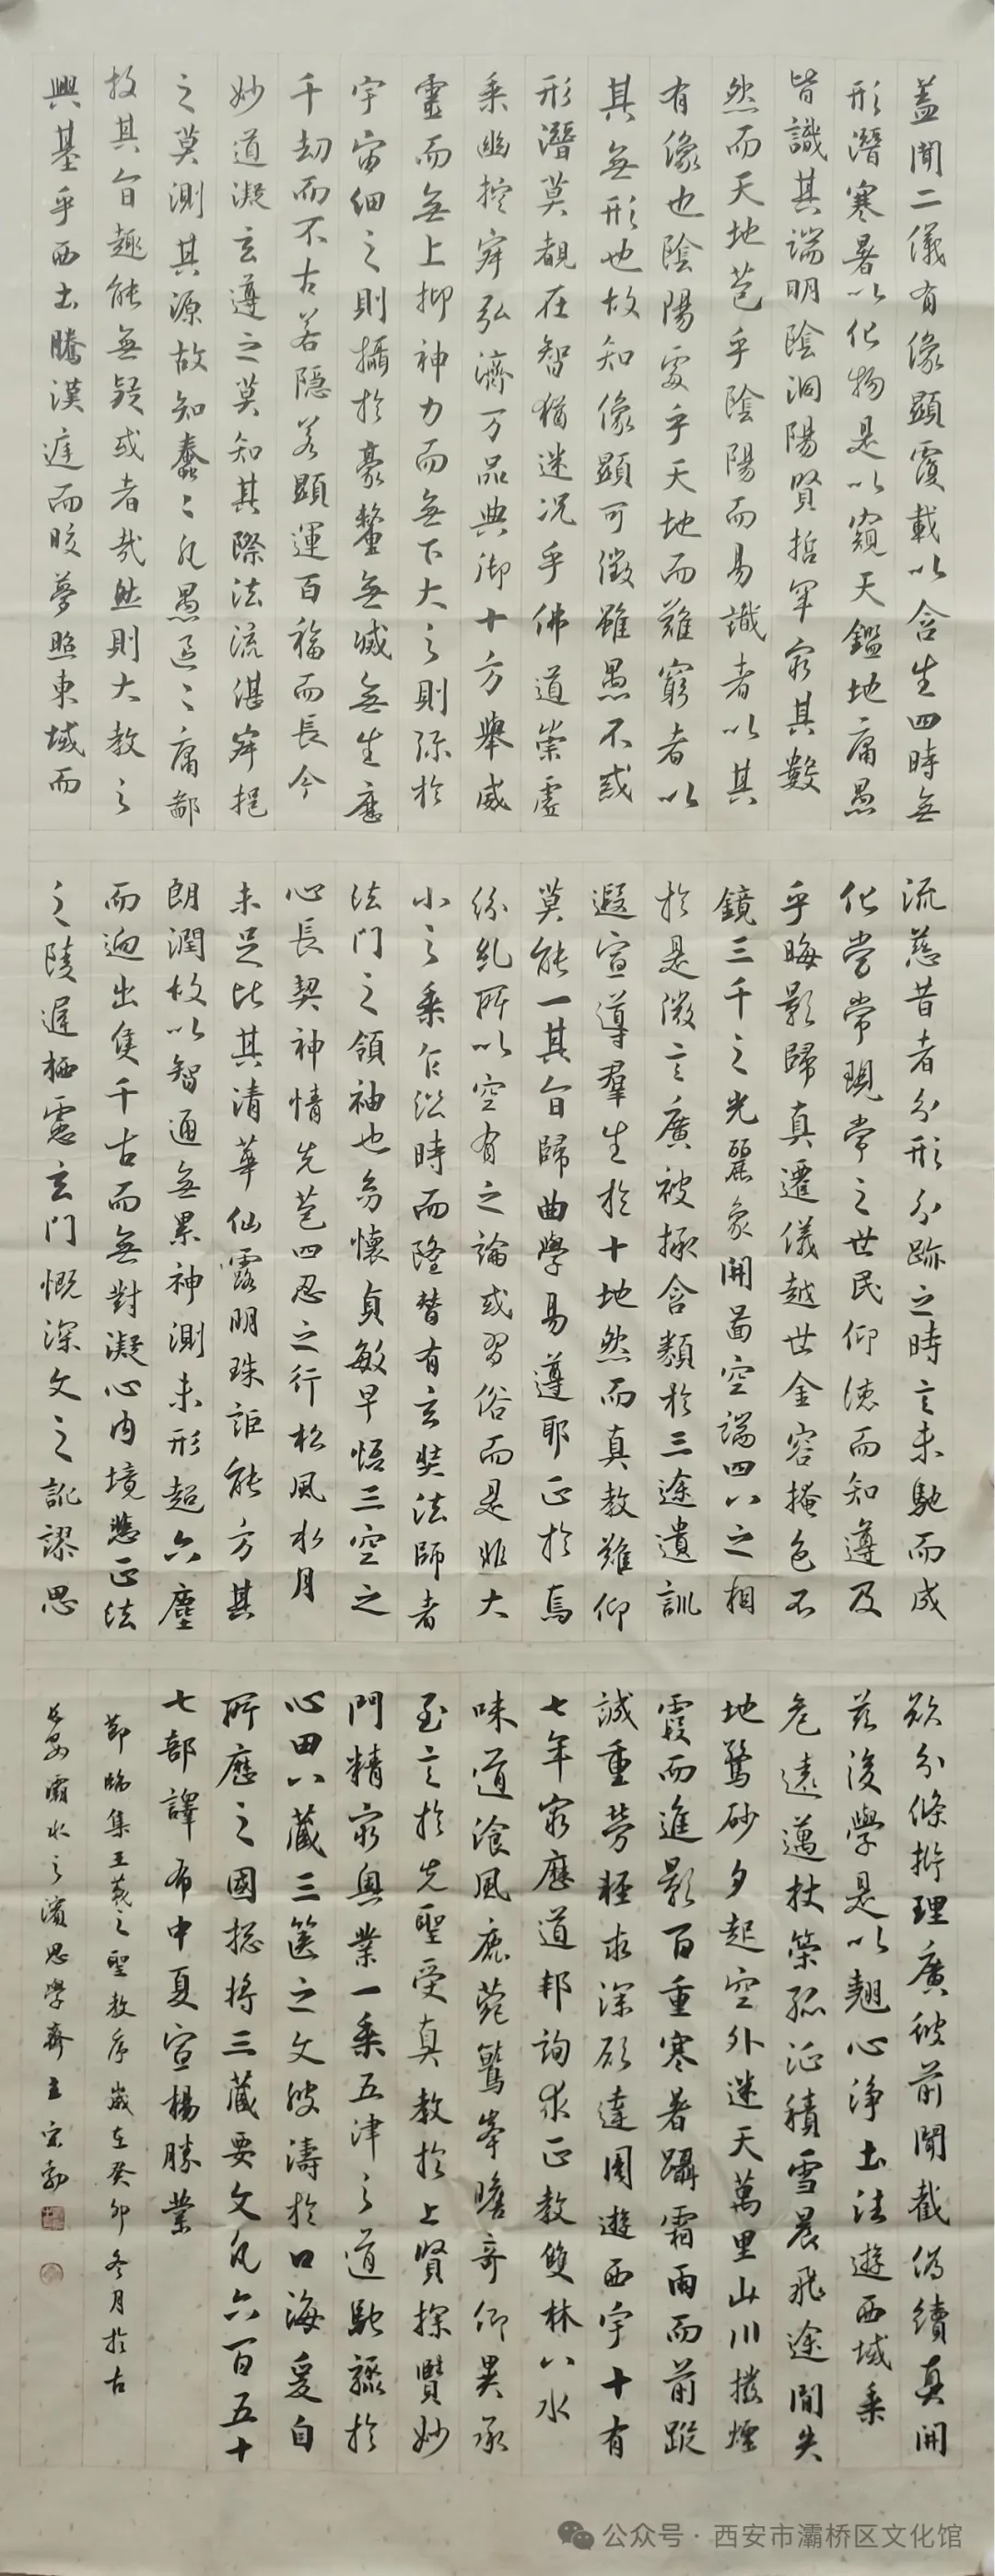 蓋聞二儀有像顯覆載以含生四時無
形潛寒暑以化物是以窺天鑑地庸愚
皆識其端明陰洞陽賢哲罕窮其數
然而天地苞乎陰陽而易識者以其
有像也陰陽處乎天地而難窮者以
其無形也故知像顯可徵雖愚不惑
形潛莫覩在智猶迷況乎佛道崇虛
乘幽控寂弘濟万品典御十方舉威
靈而無上抑神力而無下大之則弥於
宇宙細之則攝於豪釐無滅無生歷
千劫而不古若隱若顯運百福而長今
妙道凝玄遵之莫知其際法流湛寂挹
之莫測其源故知蠢々凡愚區々庸鄙
投其旨趣能無疑或者哉然則大教之
興基乎西土騰漢庭而皎夢照東域而
流慈昔者分形分跡之時言未馳而成
化當常現常之世民仰德而知遵及
乎晦影歸真遷儀越世金容掩色不
鏡三千之光麗象開圖空端四八之相
於是微言廣被拯含類於三途遺訓
遐宣導羣生於十地然而真教難仰
莫能一其旨歸曲學易遵耶正於焉
紛糺所以空有之論或習俗而是非大
小之乘乍沿時而隆替有玄奘法師者
法門之領袖也幼懷貞敏早悟三空之
心長契神情先苞四忍之行松風水月
未足比其清華仙露明珠詎能方其
朗潤故以智通無累神測未形超六塵
而逈出隻千古而無對凝心內境悲正法
之陵遲栖慮玄門慨深文之訛謬思
欲分條析理廣彼前聞截偽續真開
茲後學是以翹心淨土法遊西域乘
危遠邁杖策孤征積雪晨飛途間失
地驚砂夕起空外迷天萬里山川撥煙
霞而進影百重寒暑躡霜雨而前蹤
誠重勞輕求深願達周遊西宇十有
七年窮歷道邦詢求正教雙林八水
味道飡風鹿菀鷲峯瞻奇仰異承
至言於先聖受真教於上賢探賾妙
門精窮奧業一乘五津之道馳驟於
心田八藏三篋之文波濤於口海爰自
所歷之國揔將三藏要文凡六百五十
七部譯布中夏宣揚勝業
節臨集王羲之聖教序歲在癸卯冬月於古
長安灞水之濱思學齋主宗勃
公众号·西安市灞桥区文化馆